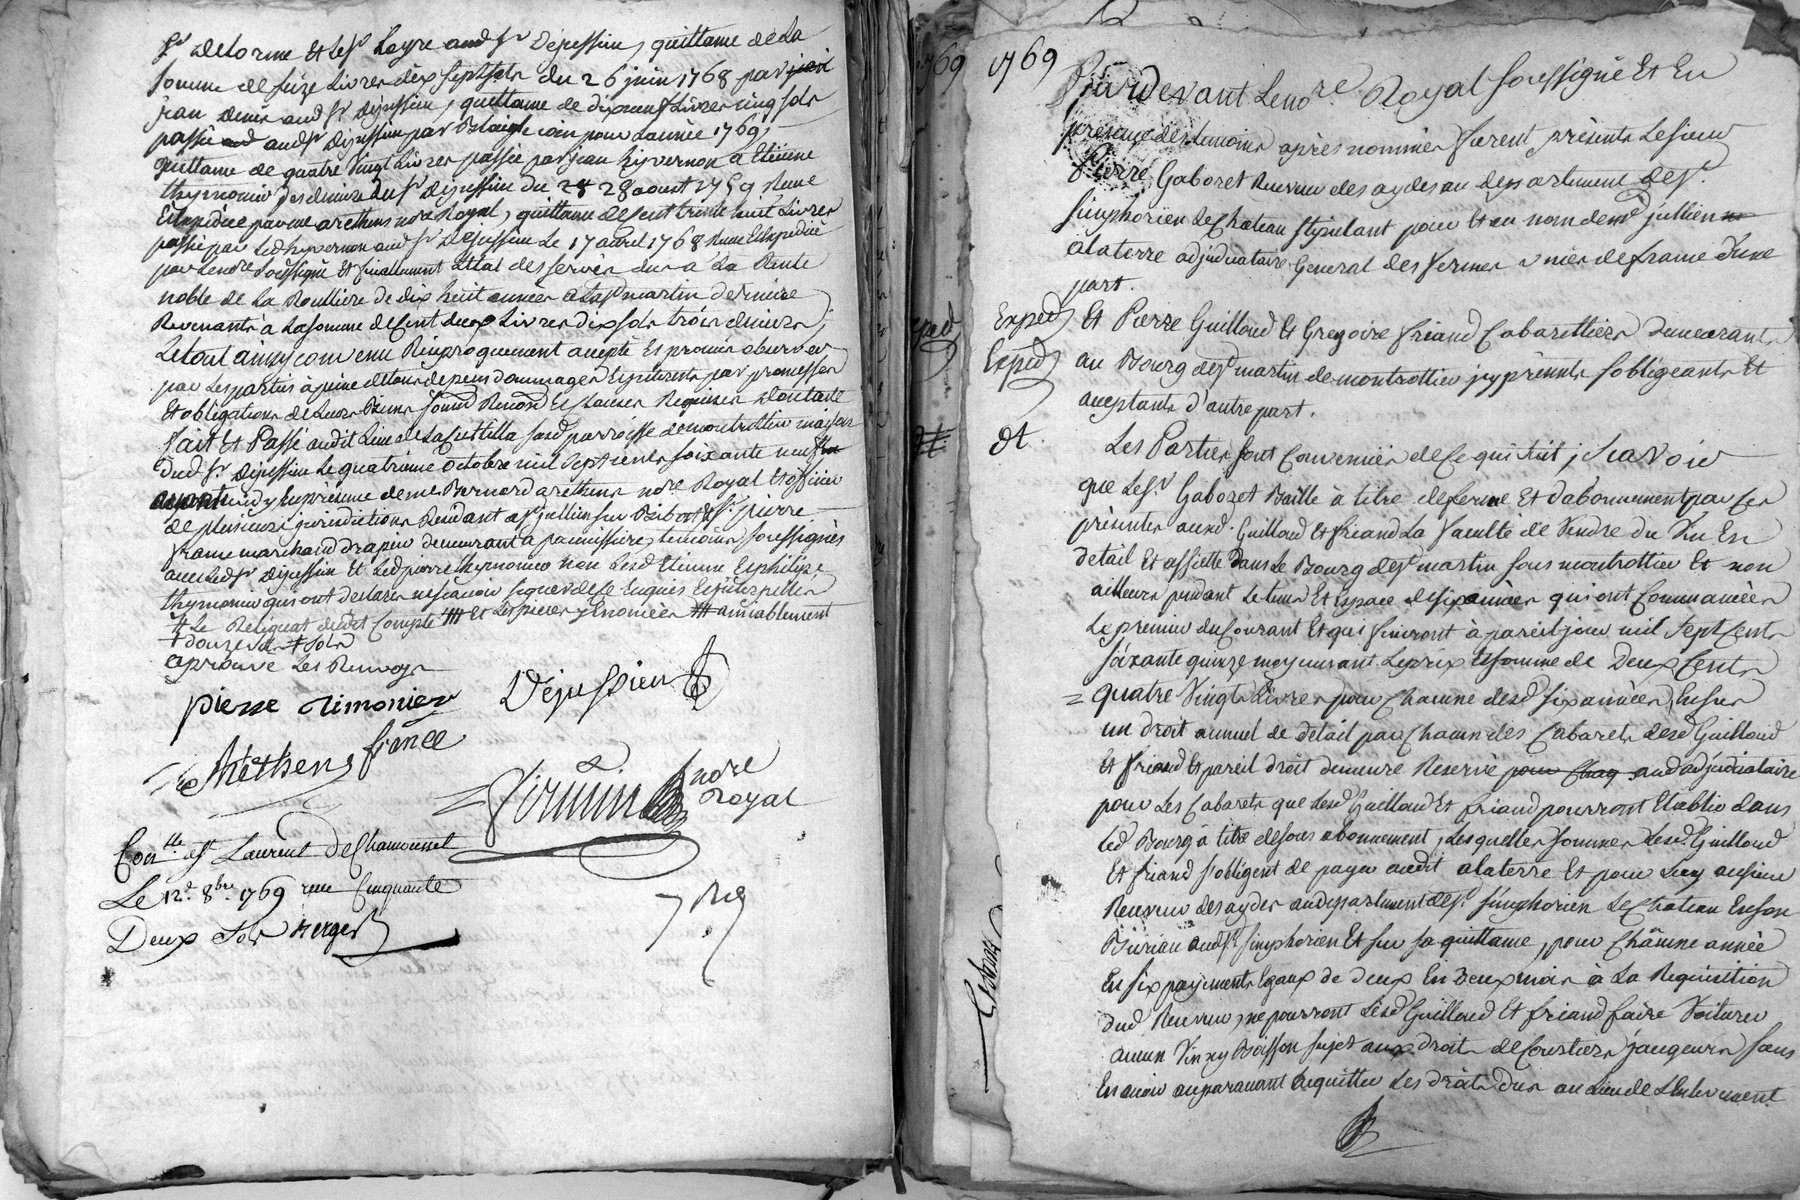 Sr Delorme et lesr Loyre audsr Dejussieu, quittance de la
somme de seize livres dix sept sols du 26 juin 1768 par
jean denis audsr Dejussieu, quittance de dixneuf livres cinq sols
passée audsr Dejussieu par Blaize coin pour Lannée 1769,
quittance de quatre vingt livres passée par jean hyvernon a Etienne
thymonier des deniers dusr Dejussieu du 28 aoust 1759 Reçue
Et expediée par me arethens nore Royal, quittance de cent trente huit livres
passée par led hyvernon audsr Dejussieu le 17 avril 1768 Reçue et Expediée
par Lenore soussigné Et finallement Létat des servis dus a La Rente
noble de La Roulliere de dix huit années a la st martin derniere
Revenants à La somme de Cent deux Livres dix sols trois deniers,
Le tout ainsy convenu Réciproquement accepté Et promis observer
par Les parties à peine de tous depens dommages Et interests par promesses
Et obligations de Leurs Biens soumis Renoncé Et clauses Requises dont acte
fait Et Passé audit Lieu de La parroisse de montrottier maison
dud sr Dejussieu Le quatrieme octobre mil sept cents soixante neuf
en presence de me Bernard arethens nore Royal Et officier
de plusieurs jurisdictions Residant a st jullien sur Bibost Et sr pierre
france marchand drapier demeurant a panissiere, temoins soussignés
avec Ledsr Dejussieu Et Led pierre thymonier non Lesd Etienne Et philipe
thymonier qui ont declaré ne scavoir signer de ce Enquis Et interpellés
Le Reliquat dudit Compte # Et Les pieces y Enoncées # amiablement
+ douze + sols
aprouvé Les Renvoys
pierre Timonier Dejussieu
Aréthens france
firmin nore
Royal
Conlle a St Laurent de Chamousset
Le 12e 8bre 1769 reçu Cinquante
Deux sols Berger
1769 1769
Pardevant Lenore Royal soussigné Et En
presence des temoins après nommés furent présents Le sieur
Pierre Gaboret Receveur des aydes au departement de st
simphorien Le Chateau stipulant pour Et au nom de me jullien
alaterre adjudicataire General des fermes unies de france d'une
part.
Exped Et Pierre Guilloud Et Gregoire friand Cabarettiers demeurants
Exped au Bourg de st martin de montrottier icy présents s'obligeants Et
acceptants d'autre part.
dt. Les Parties sont Convenues de Ce qui suit, scavoir
que Le sr Gaboret Baille à titre de ferme Et d'abonnement par Ces
présentes auxd. Guilloud Et friand La faculté de Vendre du Vin En
detail Et assiette dans Le Bourg de st martin sous montrottier Et non
ailleurs pendant Le tems Et Espace de six années qui ont Commancées
Le premier du Courant Et qui finiront à pareil jour mil sept cents
soixante quinze moyennant Le prix Et somme de Deux Cents
quatre Vingts Livres pour Chacune desd six années, En sus
un droit annuel de détail par Chacun des Cabarets desd Guilloud
Et friand Et pareil droit demeure Reservé pour Chaq aud adjudicataire
pour Les Cabarets que Lesd Guilloud Et friand pourront Etablir dans
Led Bourg à titre de sous abonnement, Lesquelles sommes Lesd. Guilloud
Et friand s'obligent de payer audit alaterre Et pour Luy au sieur
Receveur des aydes au departement de st simphorien Le Chateau En son
Bureau aud st simphorien Et sur sa quittance, pour Chacune année
En six payements Egaux de deux En deux mois à La Requisition
dud Receveur, ne pourront Lesd Guilloud Et friand faire Voiturer
aucun Vin ny Boisson sujet aux droits de Courtiers jaugeurs sans
En avoir auparavant acquitter Les droits dus au Lieu de L'enlevement